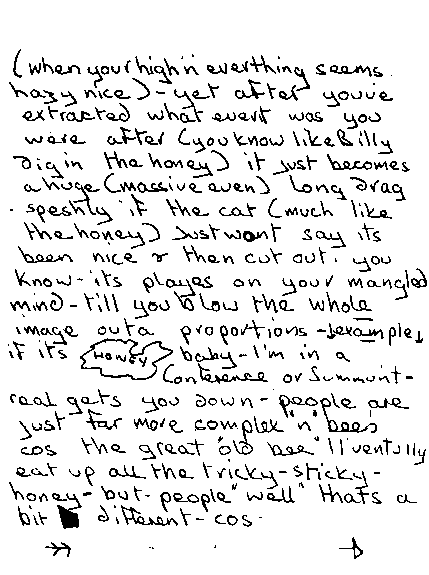 (when your high 'n' everthing seems
hazy nice) - yet after youve
extracted what evert was you
were after (you know like Billy
Dig in the honey) it just becomes
a huge (massive even) long drag
speshly if the cat (much like
the honey) Just wont say its
been nice & then cut out. you
know - its played on your mangled
mind - till you blow the whole
image outa proportions - example
if its HONEY baby - I'm in a
Conference or Summunt -
real gets you down - people are
just far more complex "n" bees
cos the great "old bee" ll'ventully
eat up all the tricky - sticky -
honey - but - people "well" thats a
bit different - cos -